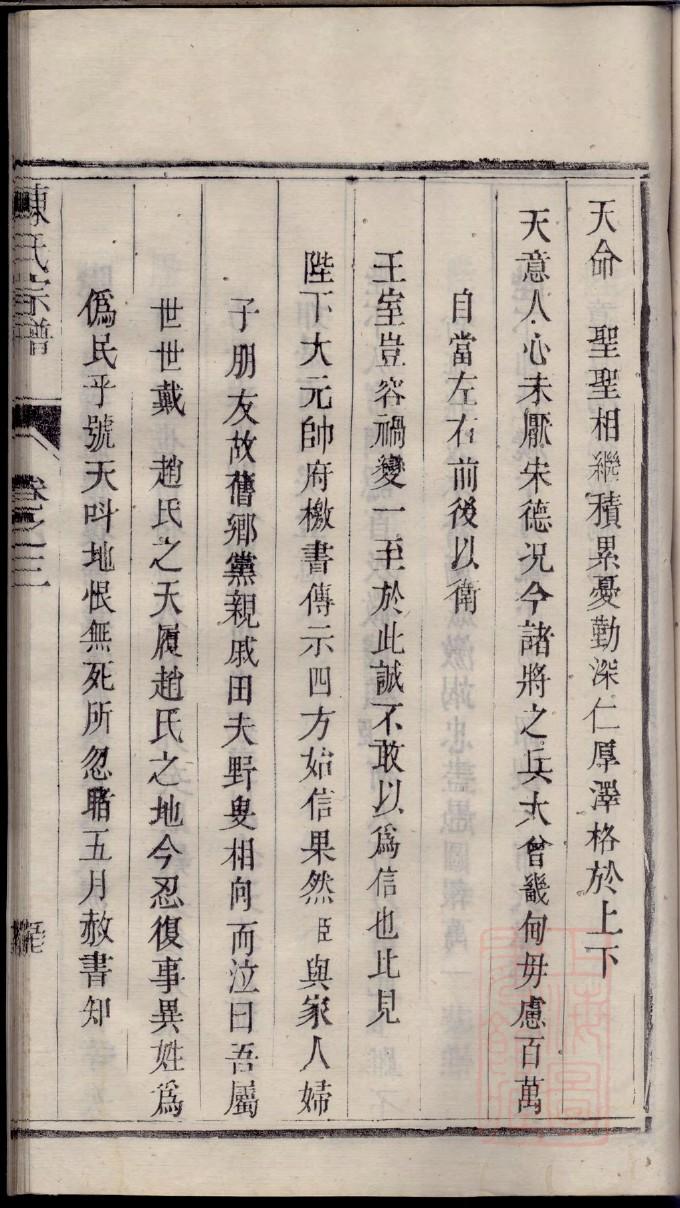 天命　聖聖相繼積累憂勤深仁厚澤格於上下
天意人心未厭宋德况今諸將之兵大會畿甸毋慮百萬
自當左右前後以衛
王室豈容禍變一至於此誠不敢以爲信也比見
陛下大元帥府檄書傳示四方始信果然臣與家人婦
子朋友故舊鄉黨親戚田夫野叟相向而泣曰吾屬
世世戴　趙氏之天履趙氏之地今忍復事異姓爲
僞民乎號天呌地恨無死所忽睹五月赦書知
陳氏宗譜
卷之三